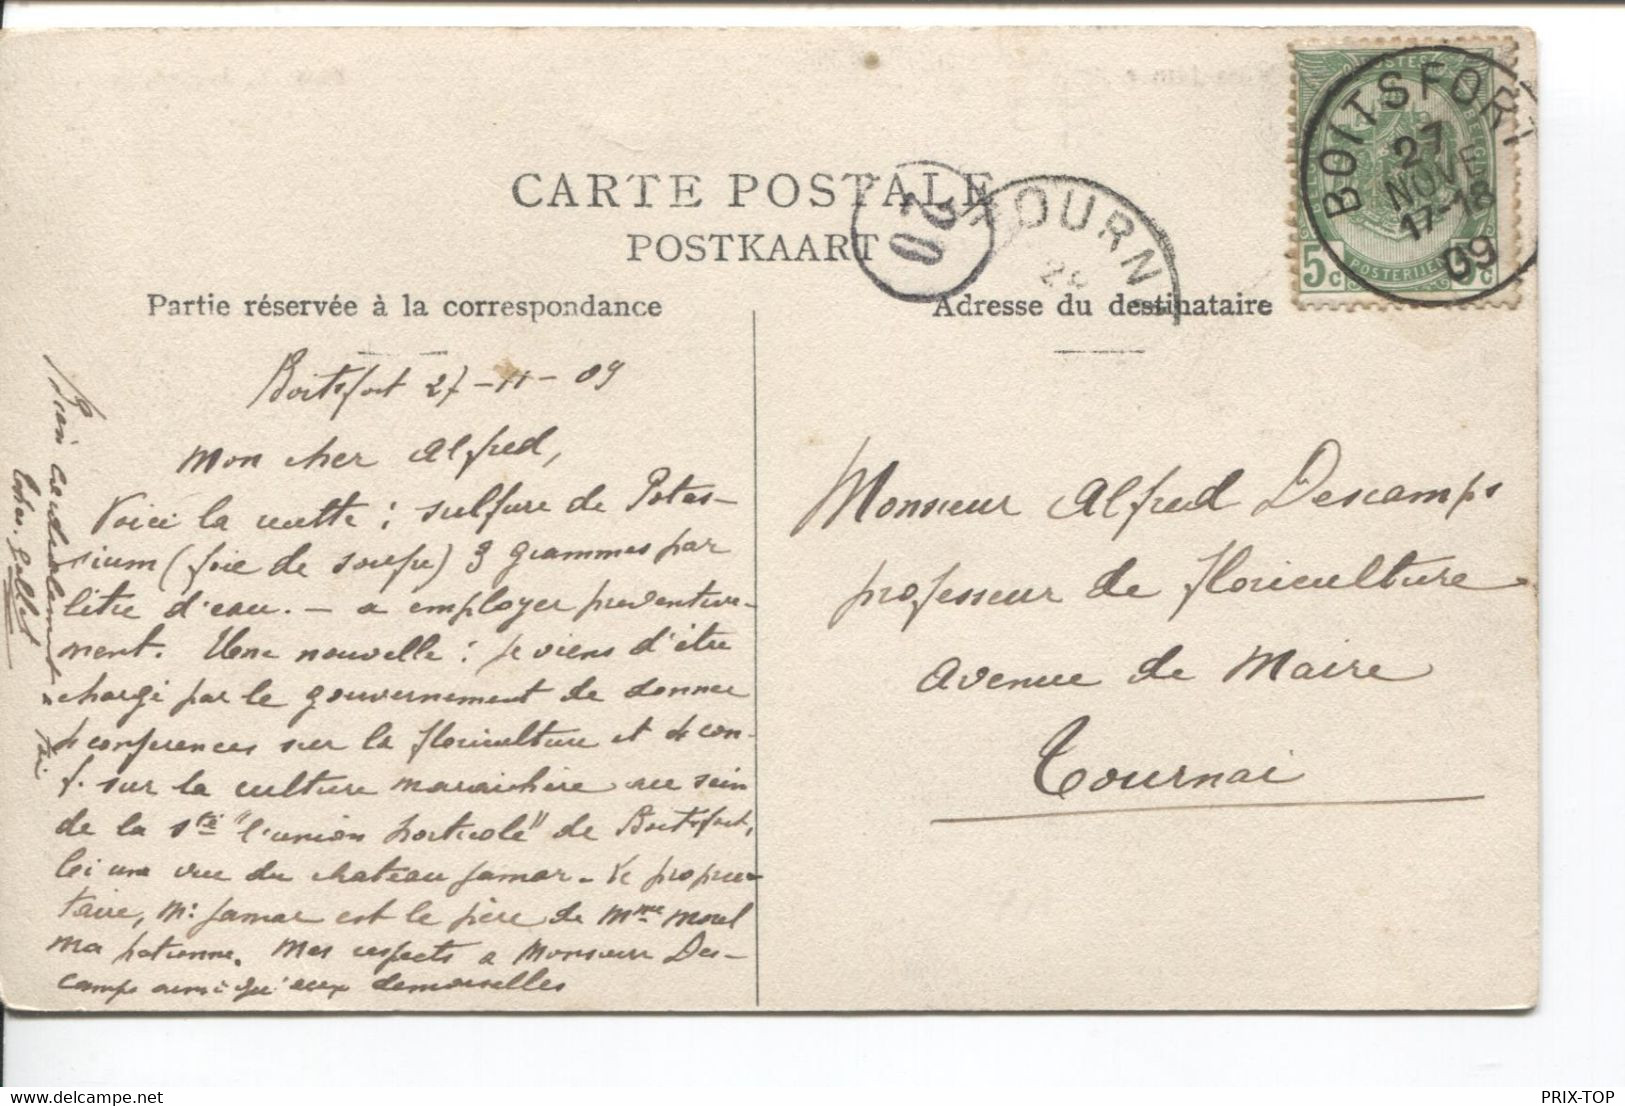 CARTE POSTALE
POSTKAART
Partie réservée à la correspondance
Adresse du destinataire
BOITSFORT
27
NOVE
17-18
09
POSTERIJEN
5c
TOURN
Boitsfort 27-11-09
Mon cher Alfred,
Voici la recette : sulfure de Potas-
sium (foie de soufre) 3 grammes par
litre d'eau. — a employer preventive-
ment. Une nouvelle : je viens d'être
chargé par le gouvernement de donner
4 conferences sur la floriculture et 4 con-
f. sur la culture maraichère au sein
de la Sté "l'union horticole" de Boitsfort,
ici une vue du chateau Jamar. Le proprie-
taire, Mr Jamar est le père de Mme Morel
ma patronne. Mes respects a Monsieur Des-
camps ainsi qu'aux demoiselles
Bien cordialement à toi
Monsieur Alfred Descamps
professeur de floriculture
avenue de Maire
Tournai
PRIX-TOP